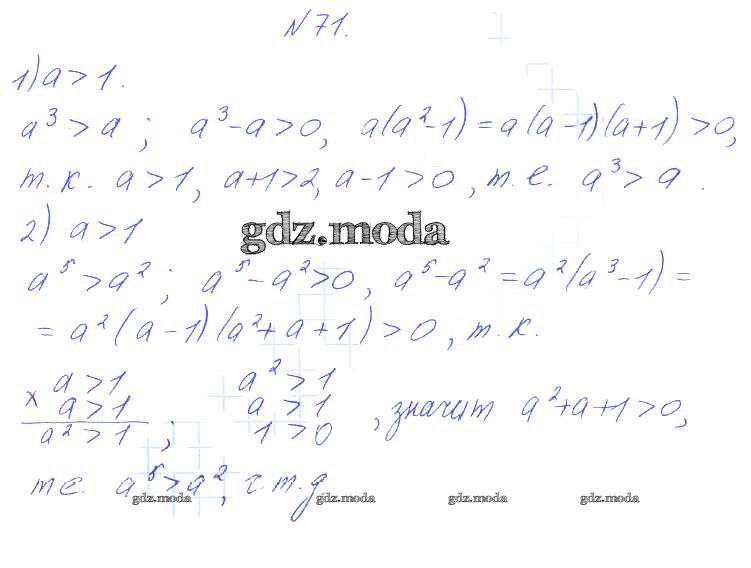 N 71.
1) a > 1.
a³ > a ; a³ - a > 0, a(a² - 1) = a(a - 1)(a + 1) > 0,
т. к. a > 1, a + 1 > 2, a - 1 > 0, т. е. a³ > a.
2) a > 1
gdz.moda
a⁵ > a² ; a⁵ - a² > 0, a⁵ - a² = a²(a³ - 1) =
= a²(a - 1)(a² + a + 1) > 0, т. к.
x a > 1 a² > 1
a > 1 a > 1 , значит a² + a + 1 > 0,
a² > 1 ; 1 > 0
т е. a⁵ > a², ч. т. д
gdz.moda gdz.moda gdz.moda gdz.moda